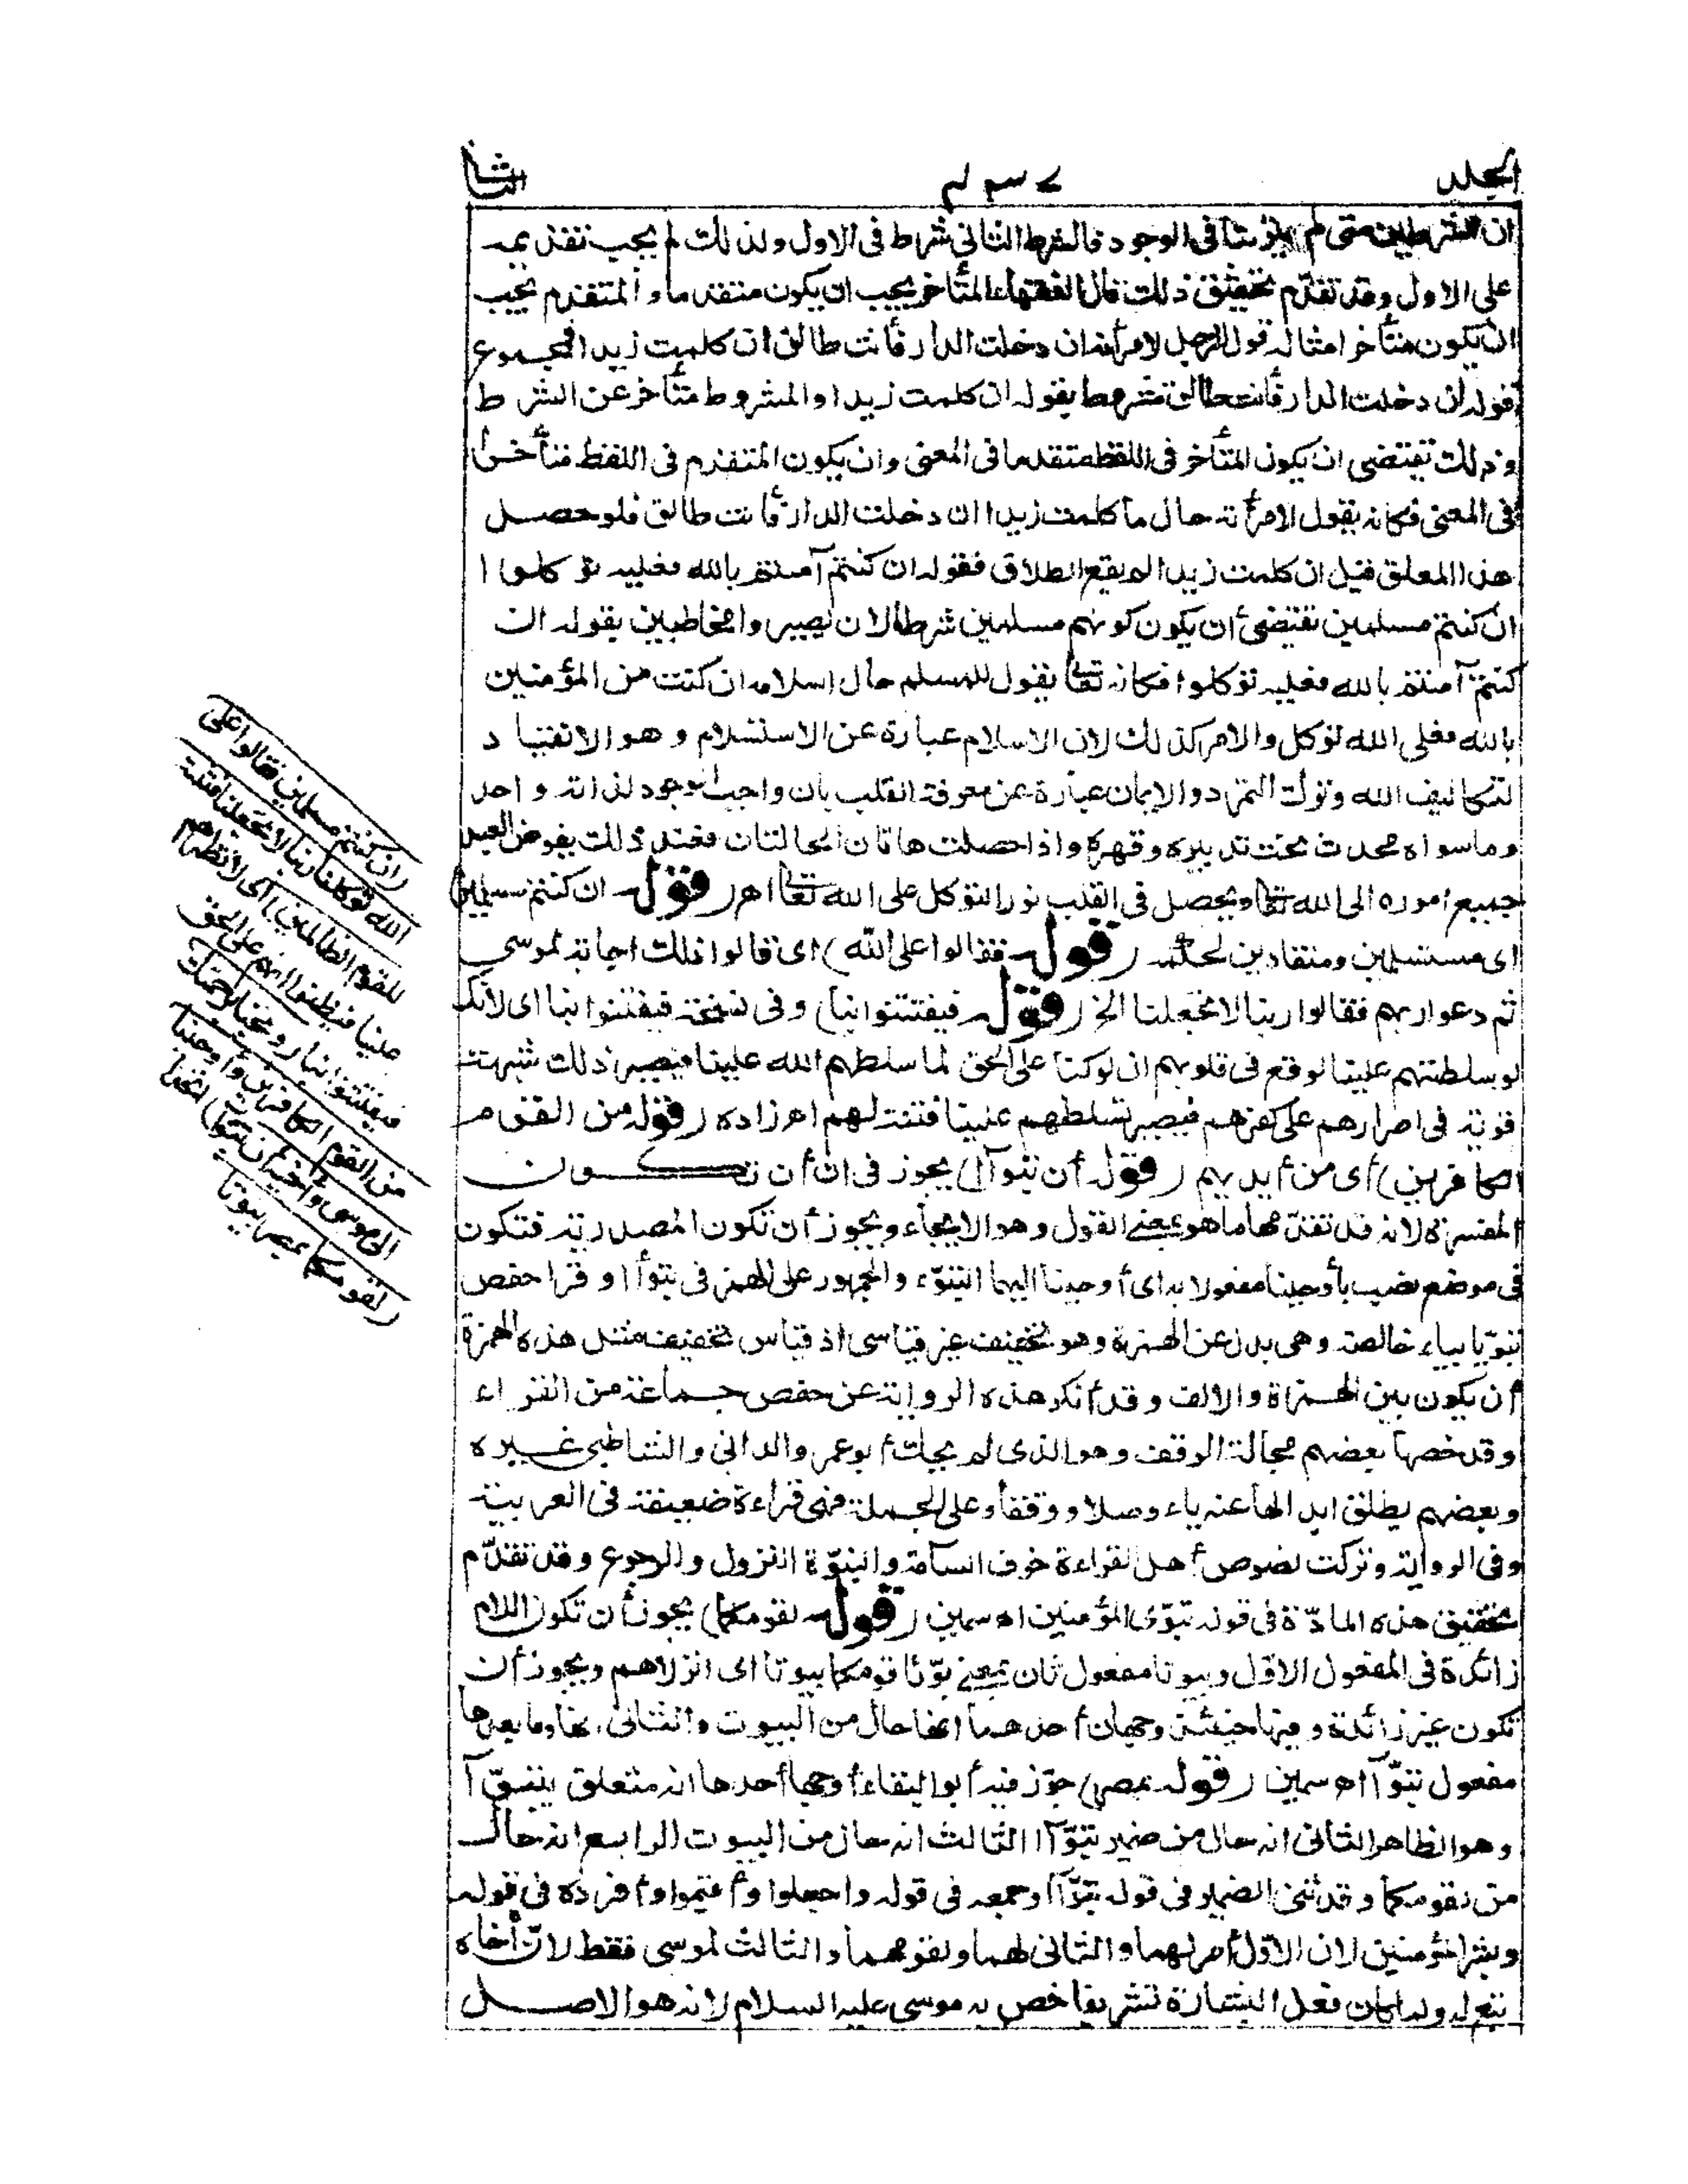 المجلد ٤٣٧ الثانى
ان الشرطين متى لم يترتبا فى الوجود فالشرط الثانى شرط فى الاول ولذلك لم يجب تقديمه
على الاول وقد تقدّم تحقيق ذلك قال الفقهاء المتأخر يجب ان يكون متقدما والمتقدم يجب
ان يكون متأخرا مثاله قول الرجل لامرأته ان دخلت الدار فأنت طالق ان كلمت زيدا فمجموع
قوله ان دخلت الدار فأنت طالق مشروط بقوله ان كلمت زيدا والمشروط متأخر عن الشرط
وذلك يقتضى ان يكون المتأخر فى اللفظ متقدما فى المعنى وان يكون المتقدم فى اللفظ متأخرا
فى المعنى فكانه يقول لامرأته حال ما كلمت زيدا ان دخلت الدار فأنت طالق فلو حصل
هذا المعلق قبل ان كلمت زيدا لم يقع الطلاق فقوله ان كنتم آمنتم بالله فعليه توكلوا
ان كنتم مسلمين يقتضى أن يكون كونهم مسلمين شرطا لان يصيروا مخاطبين بقوله ان
كنتم آمنتم بالله فعليه توكلوا فكانه تعالى يقول للمسلم حال اسلامه ان كنت من المؤمنين
بالله فعلى الله توكل والامر كذلك لان الاسلام عبارة عن الاستسلام وهو الانقياد
لتكاليف الله وترك التمرد والايمان عبارة عن معرفة القلب بان واجب الوجود لذاته واحد
وما سواه محدث تحت تدبيره وقهره واذا حصلت هاتان الحالتان فعند ذلك يفوض العبد
جميع اموره الى الله تعالى ويحصل فى القلب نور التوكل على الله تعالى اهر (قوله ان كنتم مسلمين)
اى مستسلمين ومنقادين لحكمه (قوله فقالوا على الله) اى قالوا ذلك اجابة لموسى
ثم دعوا ربهم فقالوا ربنا لا تجعلنا الخ (قوله فيفتتنوا بنا) وفى نسخة فيفتنوا بنا اى لانك
لو سلطتهم علينا لوقع فى قلوبهم ان لو كنا على الحق لما سلطهم الله علينا فيصير ذلك شبهة
قوية فى اصرارهم على كفرهم فيصير تسلطهم علينا فتنة لهم اهر زاده (قوله من القوم
الكافرين) أى من أيديهم (قوله أن تبوآ) يجوز فى ان أن تكون
المفسرة لانه قد تقدّمها ما هو بمعنى القول وهو الايحاء ويجوز أن تكون المصدرية فتكون
فى موضع نصب بأوحينا مفعولا به اى أوحينا اليهما التبوّء والجمهور على الهمز فى تبوأا وقرا حفص
تبويا بياء خالصة وهى بدل عن الهمزة وهو تخفيف غير قياسى اذ قياس تخفيف مثل هذه الهمزة
أن يكون بين الهمزة والالف وقد أنكر هذه الرواية عن حفص جماعة من القراء
وقد خصها بعضهم بحالة الوقف وهو الذى لم يحك أبو عمرو الدانى والشاطبى غيره
وبعضهم يطلق ابدالها عنه ياء وصلا ووقفا وعلى الجملة فهى قراءة ضعيفة فى العربية
وفى الرواية وتركت نصوص أهل القراءة خوف السآمة والتبوّء النزول والرجوع وقد تقدّم
تحقيق هذه المادّة فى قوله تبوّئ المؤمنين اه سمين (قوله لقومكما) يجوز أن تكون اللام
زائدة فى المفعول الاوّل وبيوتا مفعول ثان بمعنى بوّئا قومكما بيوتا اى انزلاهم ويجوز أن
تكون غير زائدة وفيها حينئذ وجهان أحدهما انها حال من البيوت والثانى انها وما بعدها
مفعول تبوّآ اه سمين (قوله بمصر) جوّز فيه أبو البقاء أوجها أحدها انه متعلق بتبوّآ
وهو الظاهر الثانى انه حال من ضمير تبوّآ الثالث انه حال من البيوت الرابع انه حال
من لقومكما وقد ثنى الضمير فى قوله تبوّآ وجمعه فى قوله واجعلوا وأقيموا وأفرده فى قوله
وبشر المؤمنين لان الاوّل أمر لهما والثانى لهما ولقومهما والثالث لموسى فقط لانّ أخاه
تبع له ولما كان فعل البشارة تشريفا خص به موسى عليه السلام لانه هو الاصل
(ان كنتم مسلمين فقالوا على
الله توكلنا ربنا لا تجعلنا فتنة
للقوم الظالمين) أى لا تظهرهم
علينا فيظنوا انهم على الحق
فيفتتنوا بنا (ونجنا برحمتك
من القوم الكافرين وأوحينا
الى موسى وأخيه أن تبوآ) اتخذا
(لقومكما بمصر بيوتا